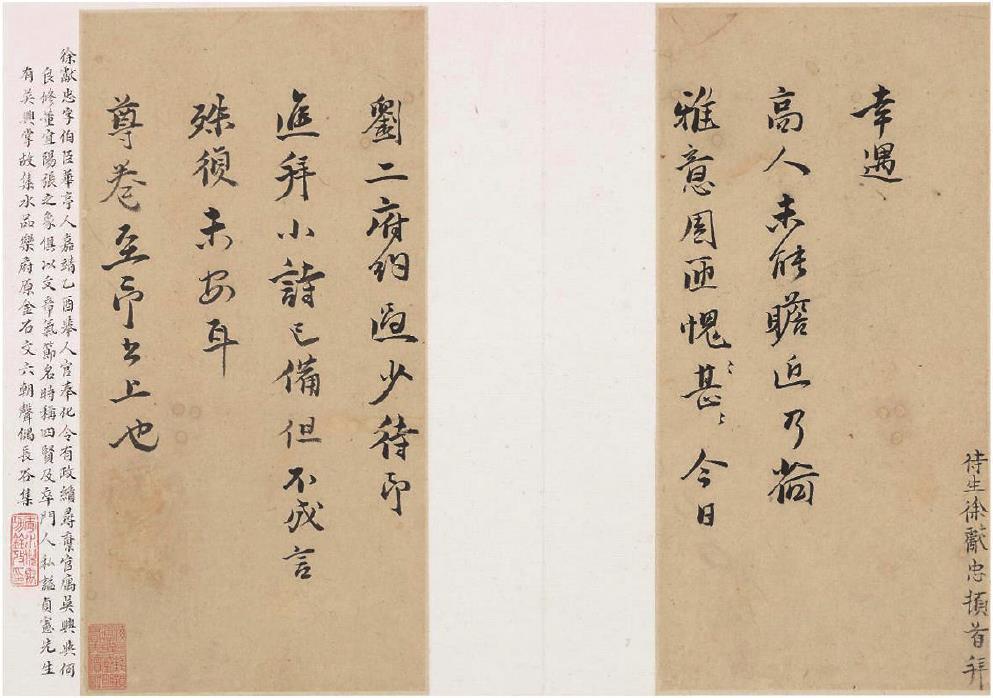 侍生徐獻忠頓首拜
幸遇
高人未能瞻近乃荷
雅意周匝愧甚〻今日
劉二府約過少待即
進拜小詩已備但不成言
殊
未安耳
尊卷至即書上也
徐獻忠字伯臣華亭人嘉靖乙酉舉人官奉化令有政績尋棄官寓吳興與何
良修董宜陽張之象俱以文章氣節名時稱四賢及卒門人私謚貞憲先生
有吳興掌故集水品樂府原金石文六朝聲偶長谷集